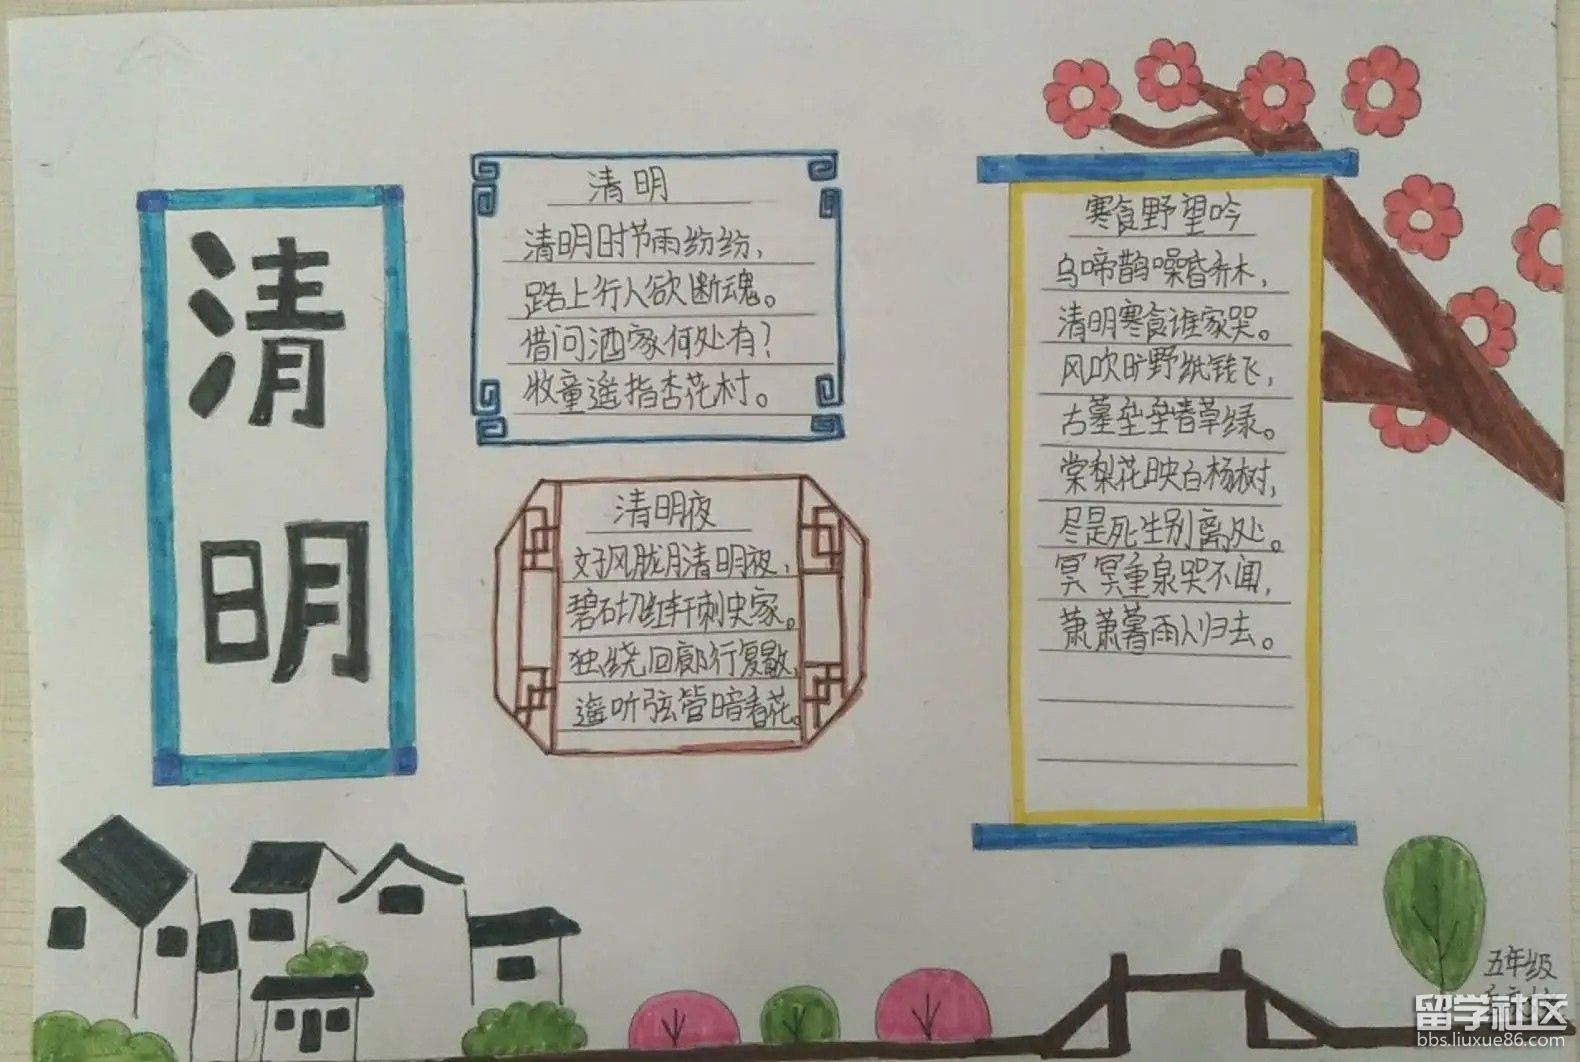 清
明
清明
清明时节雨纷纷，
路上行人欲断魂。
借问酒家何处有？
牧童遥指杏花村。
清明夜
好风胧月清明夜，
碧砌红轩刺史家。
独绕回廊行复歇，
遥听弦管暗看花。
寒食野望吟
乌啼鹊噪昏乔木，
清明寒食谁家哭。
风吹旷野纸钱飞，
古墓垒垒春草绿。
棠梨花映白杨树，
尽是死生别离处。
冥冥重泉哭不闻，
萧萧暮雨人归去。
五年级
留学社区
bbs.liuxue86.com